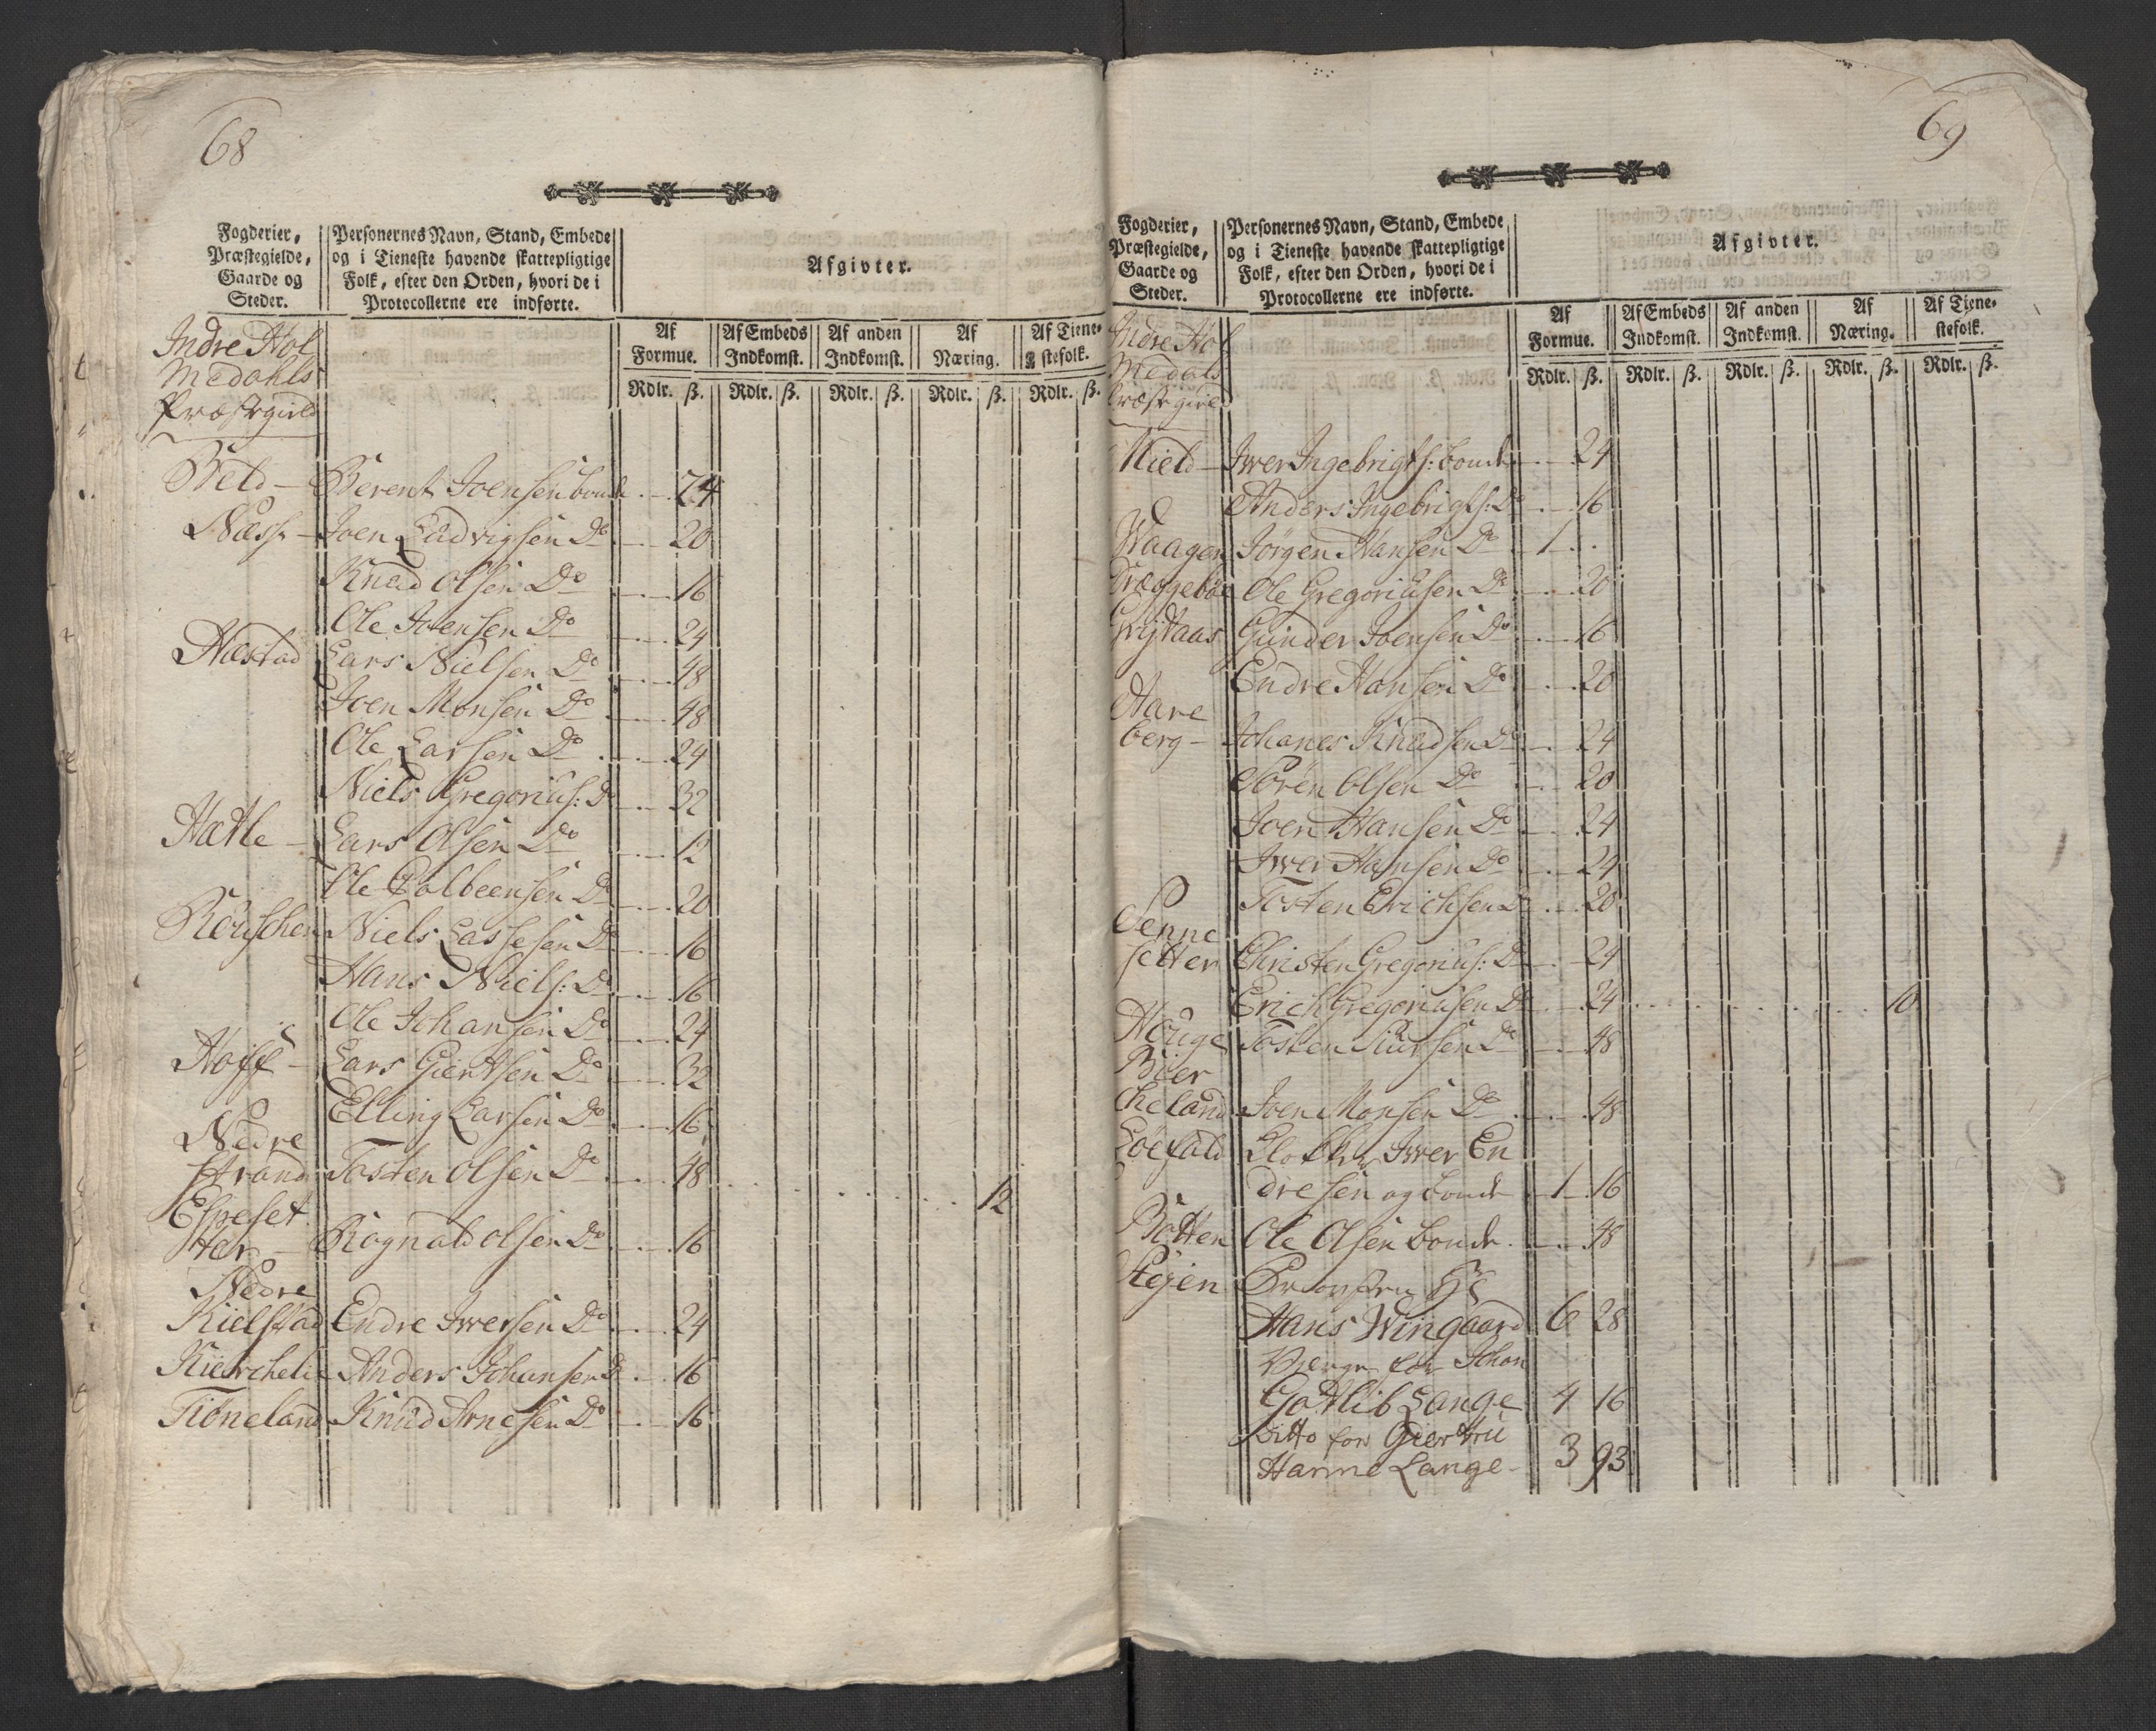 68
Fogderier,
Præstegielde,
Gaarde og
Steder.
Personernes Navn, Stand, Embede
og i Tieneste havende skattepligtige
Folk, efter den Orden, hvori de i
Protocollerne ere indførte.
Afgivter.
Af Formue.
Af Embeds Indkomst.
Af anden Indkomst.
Af Næring.
Af Tienestefolk.
Rdlr. ß. Rdlr. ß. Rdlr. ß. Rdlr. ß. Rdlr. ß.
Indre Hol
Medahls
Præstegield
Beld - Berent Joensen bonde 24
Næss - Joen Ludvigsen Do 20
Knud Olsen Do 16
Ole Joensen Do 24
Hæstad Lars Nielsen Do 48
Joen Monsen Do 48
Ole Larsen Do 24
Niels Gregorius: Do 32
Hatle - Lars Olsen Do 12
Ole Colbeensen Do 20
Niels Lassesen Do 16
Hans Niels: Do 16
Ole Johansen Do 24
Hoff - Lars Giertsen Do 32
Elling Larsen Do 16
Nedre
strand Tosten Olsen Do 48 12
Espeset
ter - Rognald Olsen Do 16
Nedre
Kielstad Endre Iversen Do 24
Kierchelie Anders Johansen Do 16
Tioneland Knud Arnesen Do 16
69
Fogderier,
Præstegielde,
Gaarde og
Steder.
Personernes Navn, Stand, Embede
og i Tieneste havende skattepligtige
Folk, efter den Orden, hvori de i
Protocollerne ere indførte.
Afgivter.
Af Formue.
Af Embeds Indkomst.
Af anden Indkomst.
Af Næring.
Af Tienestefolk.
Rdlr. ß. Rdlr. ß. Rdlr. ß. Rdlr. ß. Rdlr. ß.
Indre Hol
Medals
Præstegield
Nield - Iver Ingebrigts: bonde 24
Anders Ingebrigts: Do 16
Waagen Jørgen Hansen Do 1
Dræggebøe Ole Gregoriusen Do 20
Gunder Joensen Do 16
Endre Hansen Do 20
Hare
berg - Johanes Knudsen Do 24
Sören Olsen Do 20
Joen Hansen Do 24
Iver Hansen Do 24
Tosten Erichsen Do 20
Senne
setter Christen Gregorius: Do 24
Erich Gregoriusen Do 24 10
Houge Tosten Siursen Do 48
Bier
cheland Joen Monsen Do 48
Löefald Klokker Iver En
dresen og bonde 1 16
Botten Ole Olsen bonde 48
Stejen
Hans Wingaard 6 28
Værge for Johan
Gotlib Lange 4 16
Ditto for Giertru
Hanne Lange - 3 93